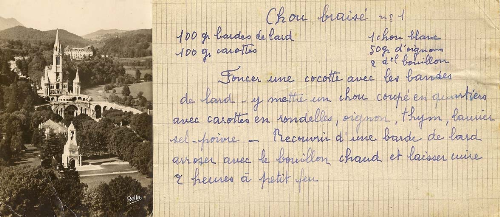 Chou braisé n° 1
100 gr bardes de lard
1 chou blanc
100 gr carottes
50 gr d'oignons
2 dl bouillon
Foncer une cocotte avec les bardes
de lard - y mettre un chou coupé en quartiers
avec carottes en rondelles, oignon, thym, laurier
sel - poivre - Recouvrir d'une barde de lard
arroser avec le bouillon chaud et laisser cuire
2 heures à petit feu